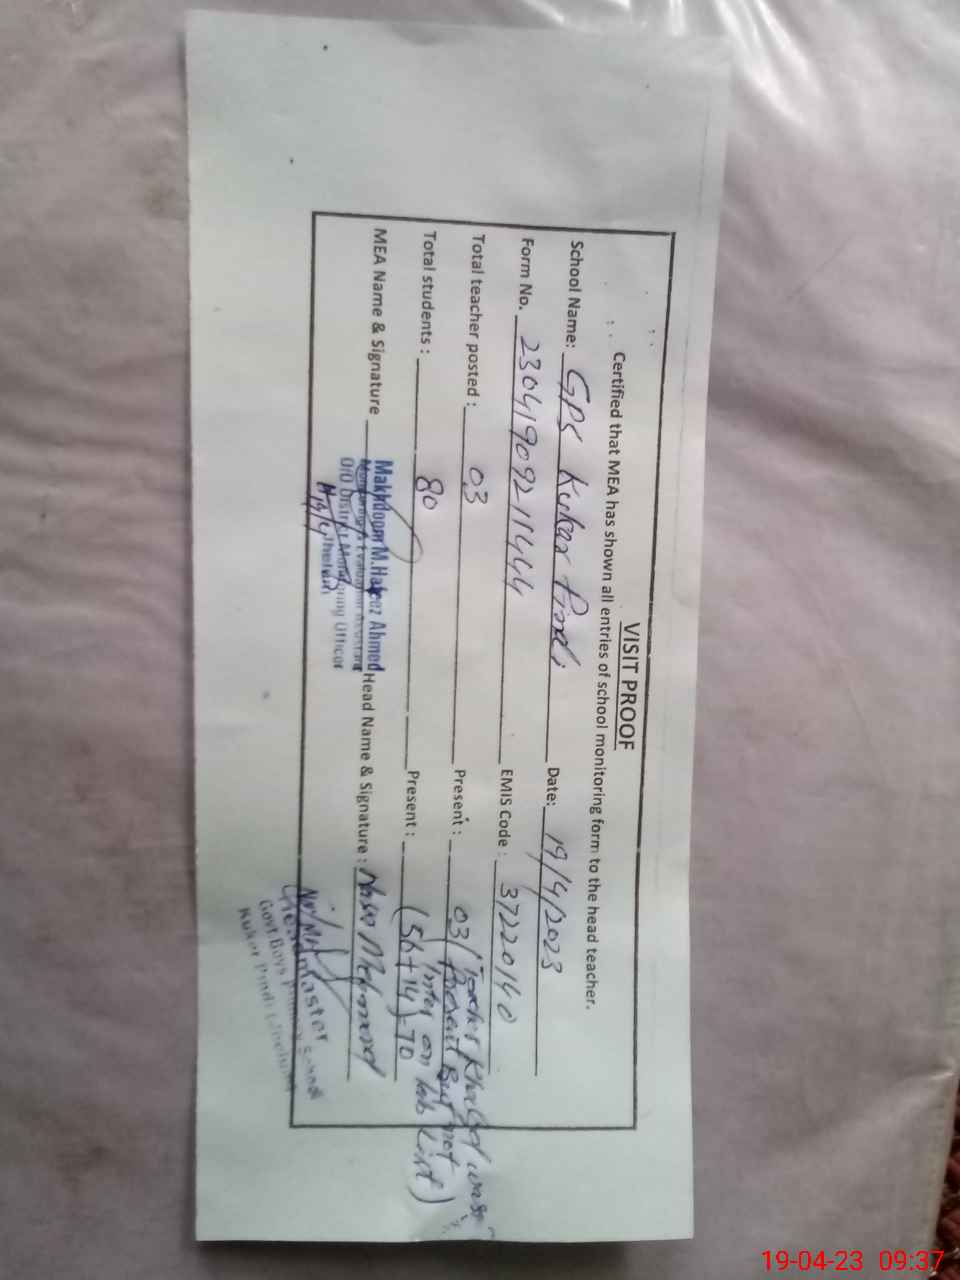 VISIT PROOF
Certified that MEA has shown all entries of school monitoring form to the head teacher.
School Name: GPS Kukar Pindi Date: 19/4/2023
Form No. 2304190921444 EMIS Code : 37220140
Total teacher posted : 03 Present : 03 ( was
Present But not
Total students : 80 Present : (56+14)=70 on tab List)
MEA Name & Signature Makhdoom M.Hafeez Ahmed Head Name & Signature : Mehmood
Monitoring & Evaluation Assistant
O/O District Monitoring Officer
Jhelum
19/4
Headmaster
Govt Boys Primary School
Kukar Pindi (Jhelum)
19-04-23 09:37